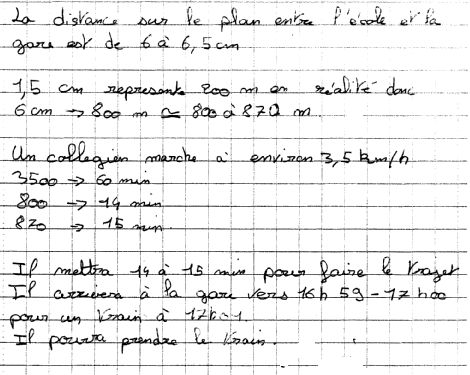 La distance sur le plan entre l'école et la
gare est de 6 à 6,5 cm
1,5 cm représente 200 m en réalité donc
6 cm → 800 m ≃ 800 à 870 m
Un collégien marche à environ 3,5 km/h
3500 → 60 min
800 → 14 min
870 → 15 min
Il mettra 14 à 15 min pour faire le trajet
Il arrivera à la gare vers 16h 59 - 17h00
pour un train à
Il pourra prendre le train.